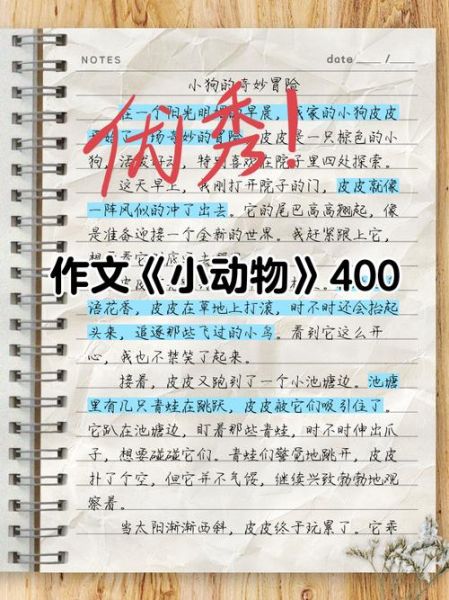 NOTES
date ___ / ___
小狗的奇妙冒险
在一个阳光明媚的早晨，我家的小狗皮皮
场奇妙的冒险。皮皮是一只棕色的小
狗，活泼好动，特别喜欢在院子里四处探索。
优秀！
这天早上，我刚打开院子的门，皮皮就像
一阵风似的冲了出去。它的尾巴高高翘起，像
是准备迎接一个全新的世界。我赶紧跟上它，
作文《小动物》400
语花香，皮皮在草地上打滚，时不时还会抬起
头来，追逐那些飞过的小鸟。看到它这么开
心，我也不禁笑了起来。
接着，皮皮又跑到了一个小池塘边。池塘
里有几只青蛙在跳跃，皮皮被它们吸引住了。
它趴在池塘边，盯着那些青蛙，时不时伸出爪
子，想要碰碰它们。青蛙们警觉地跳开，皮皮
扑了个空，但它并不气馁，继续兴致勃勃地观
察着。
当太阳渐渐西斜，皮皮终于玩累了。它乖